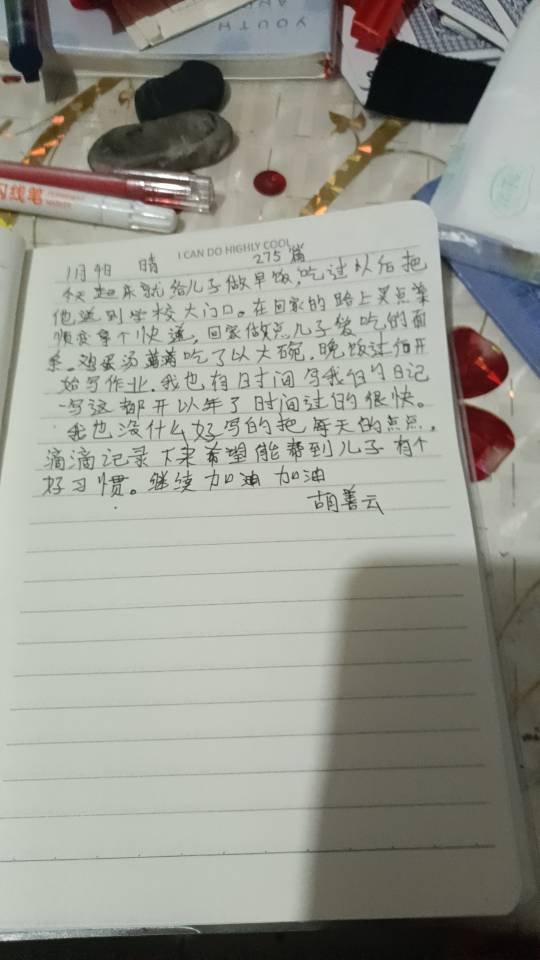 YOUTH
闪线笔
PERMANENT
MARKER
I CAN DO HIGHLY COOL
1月9日 晴 275篇
今天起来就给儿子做早饭,吃过以后把
他送到学校大门口。在回家的路上买点菜
顺变拿个快递,回家做点儿子爱吃的面
条。鸡蛋汤满满吃了以大碗。晚饭过后开
始写作业。我也有时间写我们的日记
写这都开以年了时间过的很快。
我也没什么好写的把每天的点点,
滴滴记录下来希望能帮到儿子有个
好习惯。继续加油 加油
胡善云